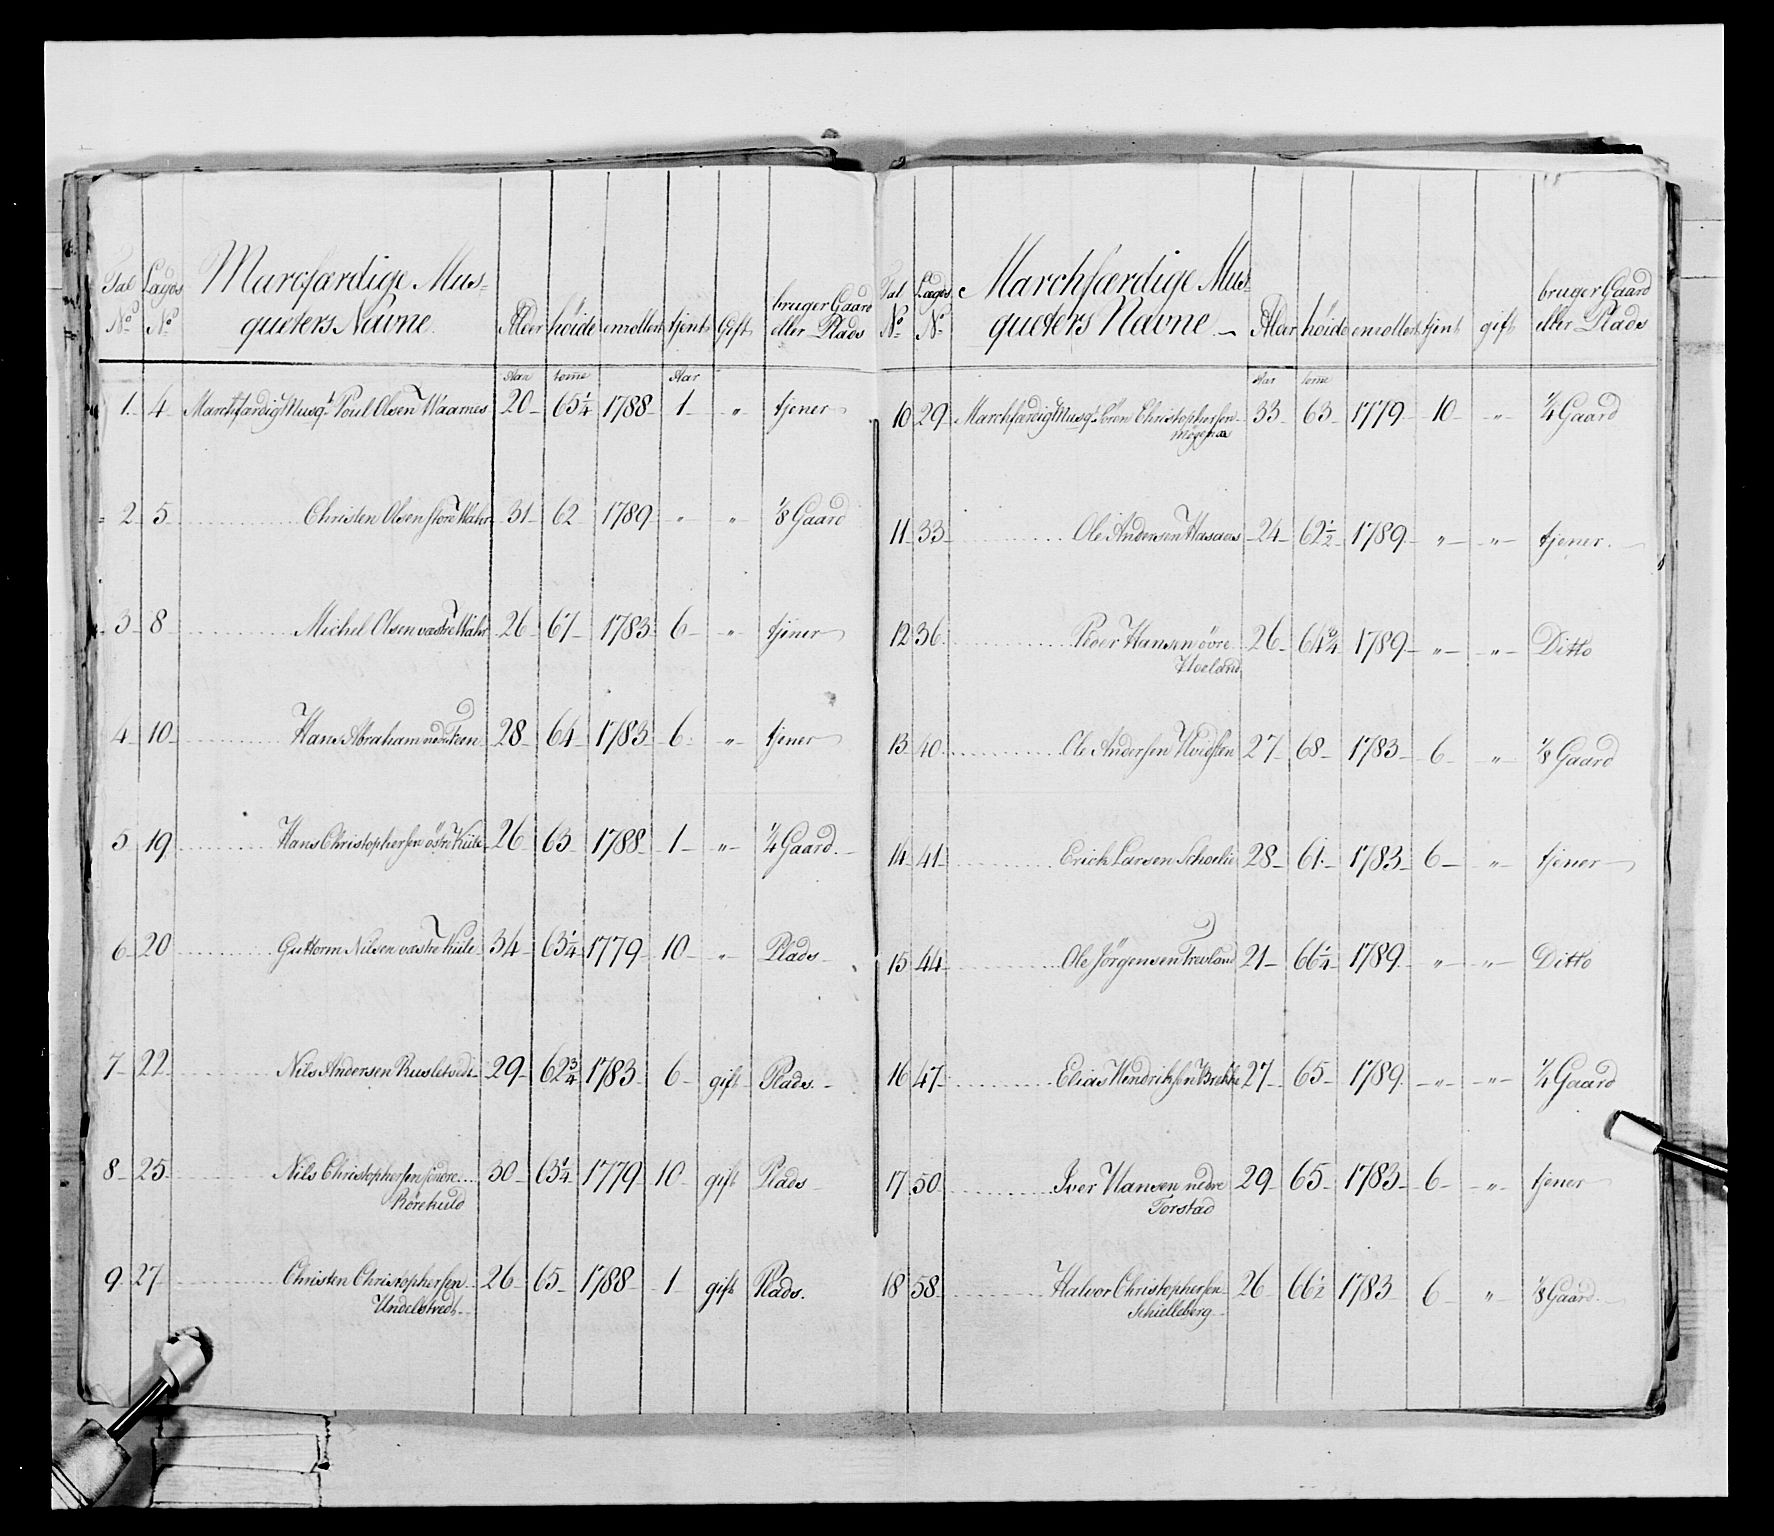 Tal Lægds Marcfærdige Mus-
No No queters Navne. Alder höide enrollert tjent Gift bruger Gaard
eller Plads
Aar tome Aar
1. 4 Marchfærdig Musqt Poul Olsen Waarnes 20 65 1/4 1788 1 " tjener
2 5 Christen Olsen store Wahr 31 62 1789 " " 1/8 Gaard
3 8 Michel Olsen væstre Wahr 26 67 1783 6 " tjener
4 10 Hans Abraham nedre Teen 28 64 1783 6 " tjener
5 19 Hans Christophersen östre Kiile 26 63 1788 1 " 1/4 Gaard.
6 20 Guttorm Nilsen væstre Kiile 34 63 1/4 1779 10 " Plads
7 22 Nils Andersen 29 62 3/4 1783 6 gift Plads.
8 25 Nils Christophersen söndre 30 63 1/4 1779 10 gift Plads
Rörekuld
9 27 Christen Christophersen 26 65 1788 1 gift Plads.
Undelstvedt
Tal Lægds Marchfærdige Mus-
No No queters Navne Alder höide enrollert tjent gift bruger Gaard
eller Plads
Aar tome
10 29 Marchfærdig Musqt Sören Christophersen 33 63 1779 10 " 1/4 Gaard
11 33 Ole Andersen Hasaas 24 62 1/2 1789 " " tjener.
12 36 Peder Hansen övre 26 64 3/4 1789 " " Ditto
Hoeland
13 40 Ole Andersen Hvidsten 27 68 1783 6 " 1/8 Gaard
14 41 Erich Larsen Schoelie 28 61 1783 6 " tjener
15 44 Ole Jörgensen Frevland 21 66 1/4 1789 " " Ditto
16 47 Elias Hendriksen Brekke 27 65 1789 " " 1/4 Gaard
17 50 Iver Hansen nedre 29 65 1783 6 " tjener
Torstad
18 58 Halvor Christophersen 26 66 1/2 1783 6 " 1/8 Gaard.
Schielleberg